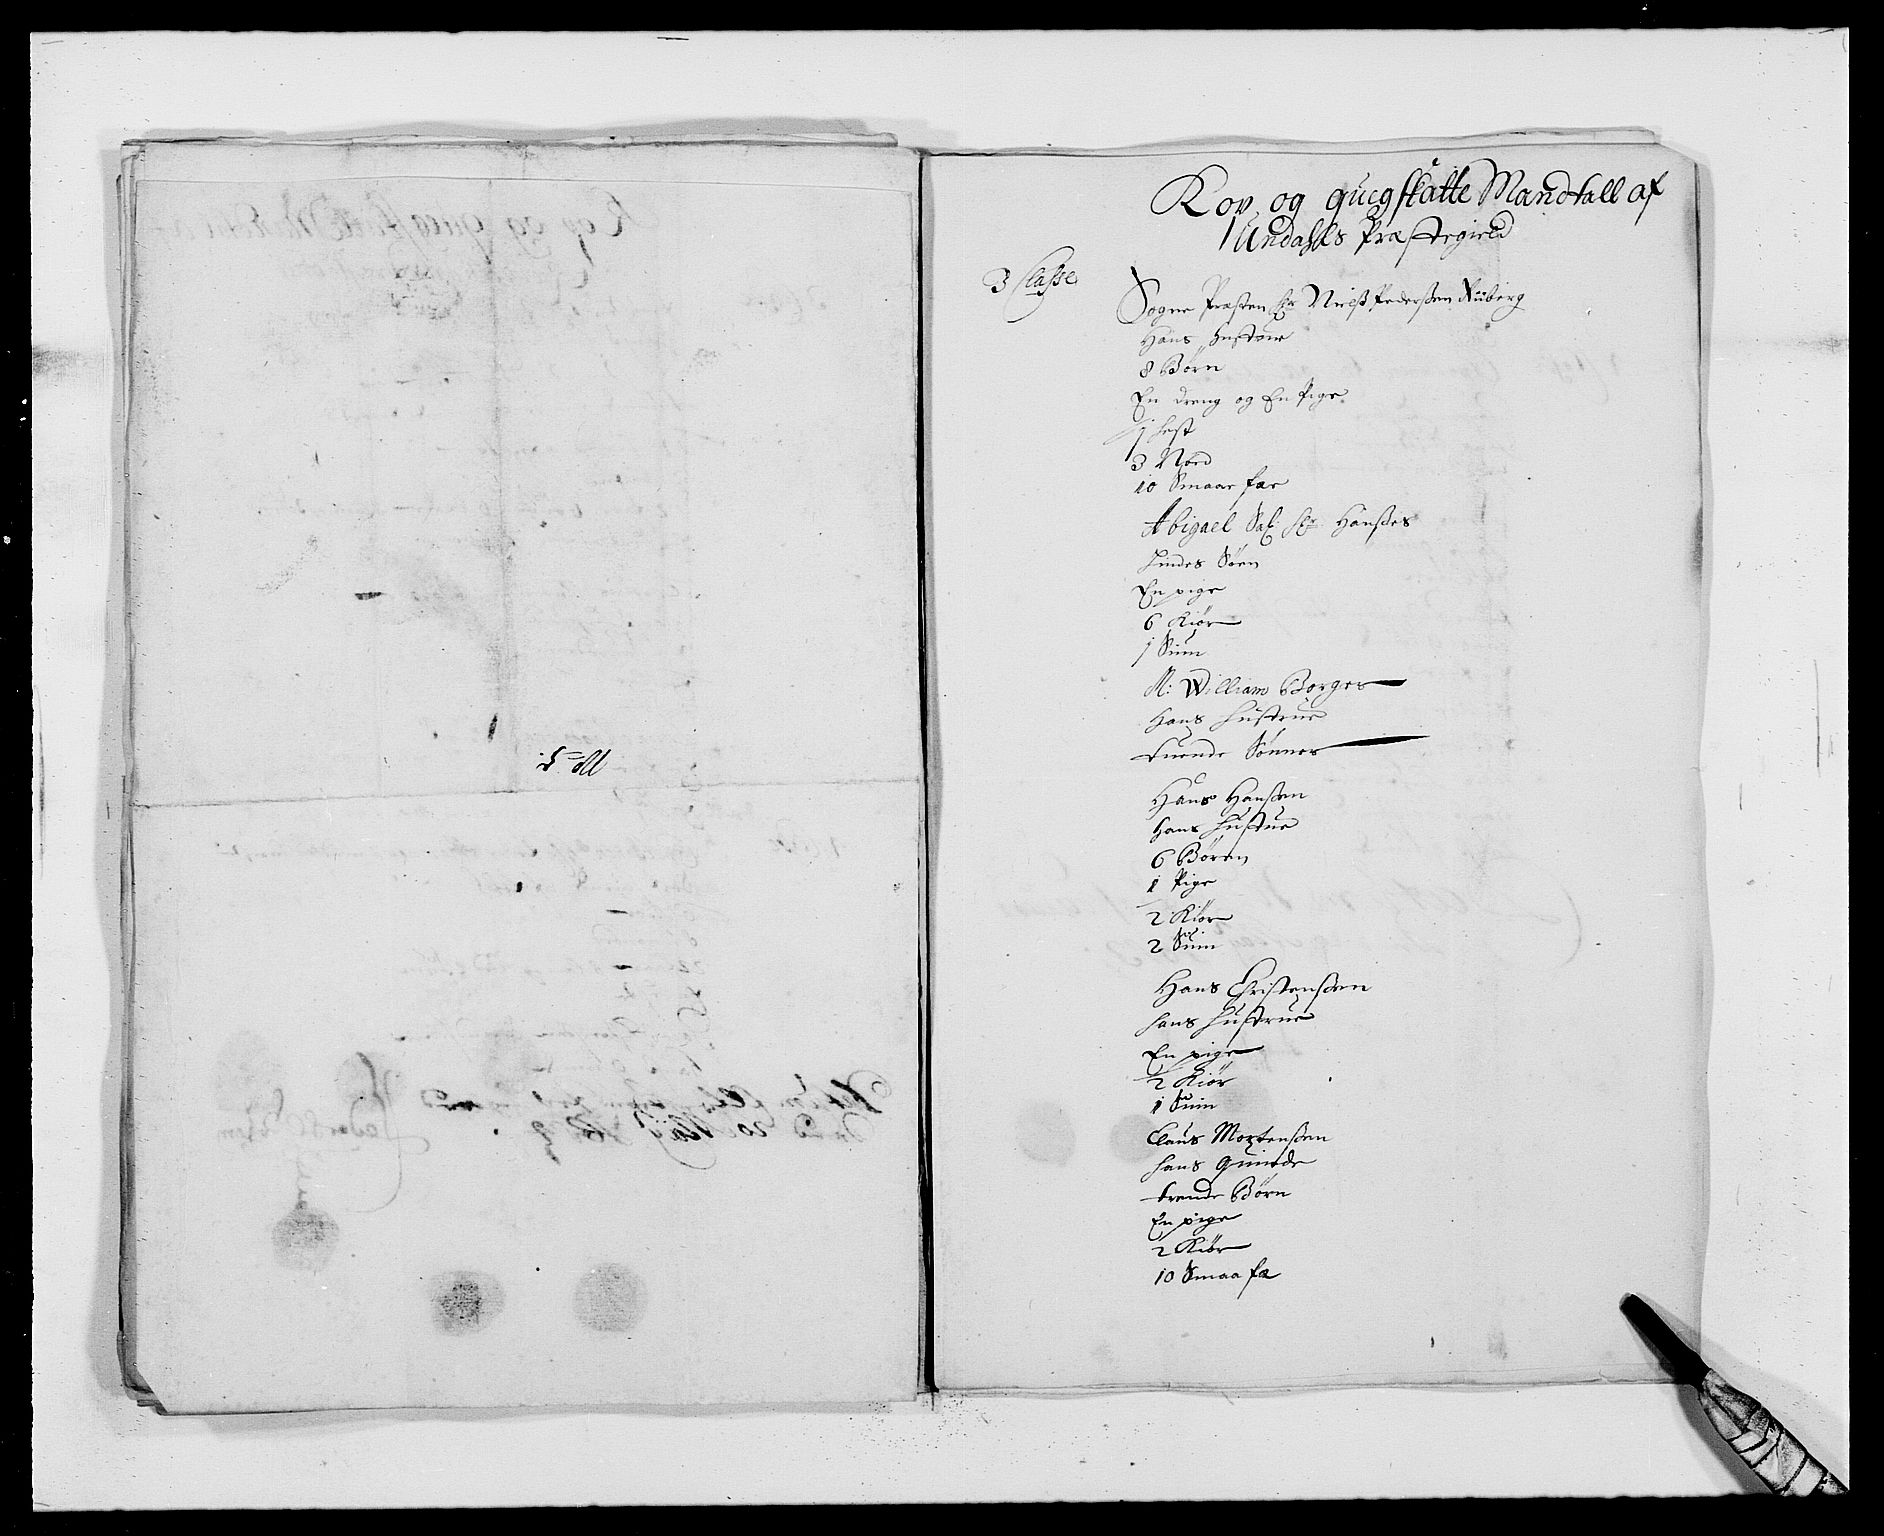 Kop og quegskatte Mandtall af
Undahls Præstegield
3 Classe
Sogne Præsten Hr Nielß Pederßen Riiberg
Hans Hustrue
8 Børn
En dreng og En Pige
1 hest
3 Nød
10 Smaae fæe
Abigael Sal: Hr Hanßes
Søen
En pige
6 Kiör
1 Suin
M: William Borges
Hans Hustrue
tuende Sønner
Hans Hanßen
Hans Hustue
6 Børen
1 Pige
2 Kiör
2 Suin
Hans Christenßen
hans Hustrue
En pige
2 Kiör
1 Suin
Claus Mortenßen
hans Quinde
trende Børn
En pige
2 Kiör
10 Smaa fæ